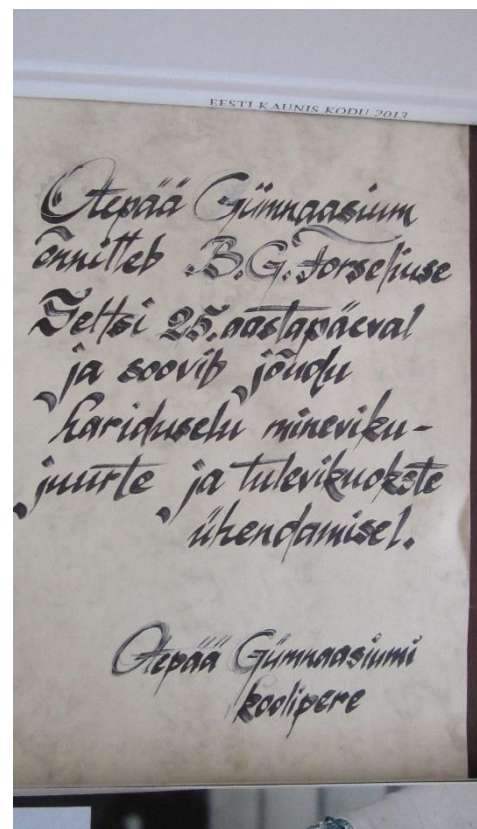 EESTI KAUNIS KODU 2013
Otepää Gümnaasium
õnnitleb B.G. Forseliuse
Seltsi 25. aastapäeval
ja soovib jõudu
hariduselu mineviku-
juurte ja tulevikuokste
ühendamisel.
Otepää Gümnaasiumi
koolipere